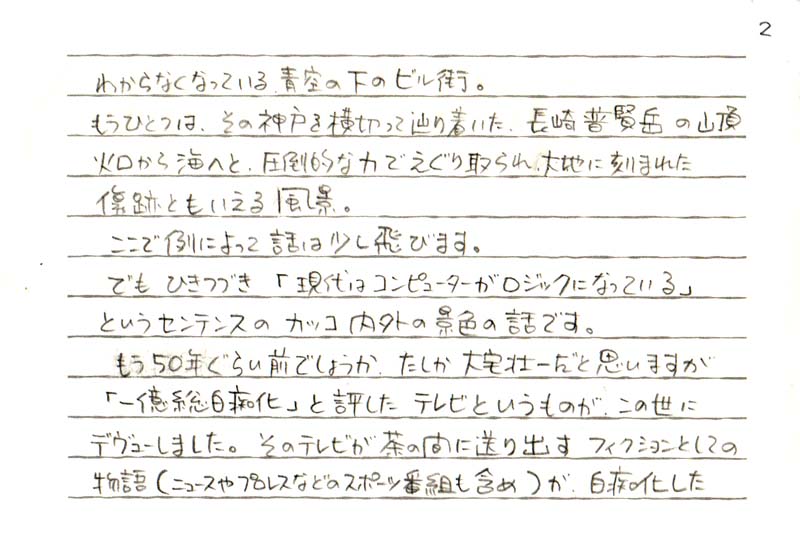 2
わからなくなっている、青空の下のビル街。
もうひとつは、その神戸を横切って辿り着いた、長崎普賢岳の山頂
火口から海へと、圧倒的な力でえぐり取られ、大地に刻まれた
傷跡ともいえる風景。
ここで例によって話は少し飛びます。
でもひきつづき「現代はコンピューターがロジックになっている」
というセンテンスのカッコ内外の景色の話です。
もう50年ぐらい前でしょうか、たしか大宅壮一だと思いますが
「一億総白痴化」と評したテレビというものが、この世に
デヴューしました。そのテレビが茶の間に送り出すフィクションとしての
物語(ニュースやプロレスなどのスポーツ番組も含め)が、白痴化した